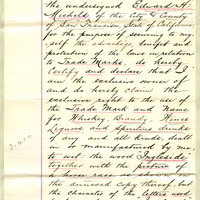 the undersigned Edward H.
Michell of the City & County
of San Francisco, State of California
for the purpose of securing to my-
self the advantage, benefit and
protection of the laws in relation
to Trade Marks, do hereby
Certify and declare that I
am the exclusive owner of
and do hereby claim the
exclusive right to the use of
the Trade Mark and Name
for Whiskey, Brandy, Wines
Liquors and Spirituous drinks
of any and all kinds, dealt
in or manufactured by me,
to wit the word Ingleside
together with the picture of
a horse race as shown on
the annexed copy thereof, but
the character of the letters used